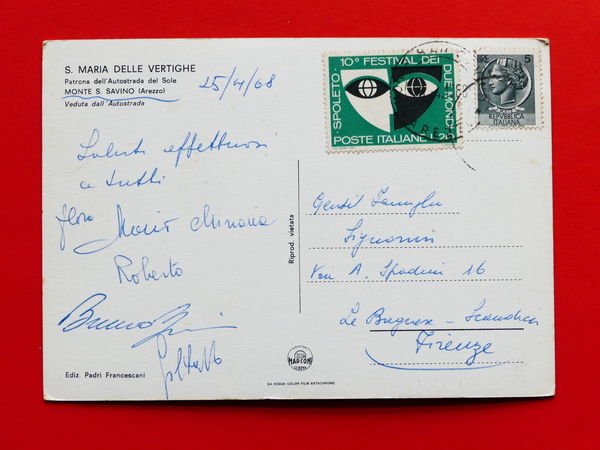 S. MARIA DELLE VERTIGHE
Patrona dell'Autostrada del Sole
MONTE S. SAVINO (Arezzo)
Veduta dall'Autostrada
25/4/68
Saluti affettuosi
a tutti
Mario
Roberto
Bruno
Ediz. Padri Francescani
Riprod. vietata
MARCONI
GENOVA
DA KODAK COLOR FILM EKTACHROME
SPOLETO · 10° FESTIVAL DEI DUE MONDI
POSTE ITALIANE
5
REPVBBLICA
ITALIANA
Gentil Famiglia
Signorini
Via A. Spadini 16
Le Bagnese - Scandicci
Firenze